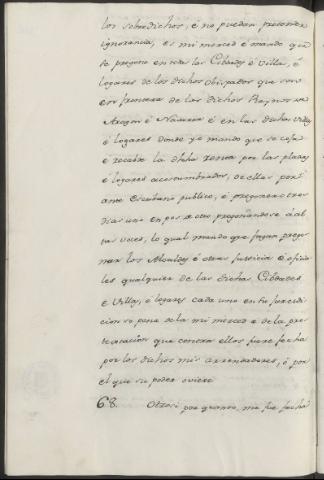 los sobredichos, é no puedan pretender
ignorancia, es mi merced é mando que
se pregone en todas las Cibdades é Villas, é
logares de los dichos Obispados que son
en frontera de los dichos Reynos de
Aragon é Navarra é en las dichas Villas
é logares donde yo mando que se coja
é recabde la dicha renta por las plazas
é logares acostumbrados, de ellas por
ante Escribano publico, é pregonero tres
dias uno en pos de otro pregonandose á al-
tas voces, lo qual mando que fagan prego-
nar los Alcaldes é otras justicias é oficia-
les qualquier de las dichas Cibdades
é Villas, é logares cada uno en su juredi-
cion so pena de la mi merced é de la pro-
testacion que contra ellos fuere fecha
por los dichos mis arrendadores, ó por
el que su poder oviere
68. Otrosi por quanto, me fue fecha